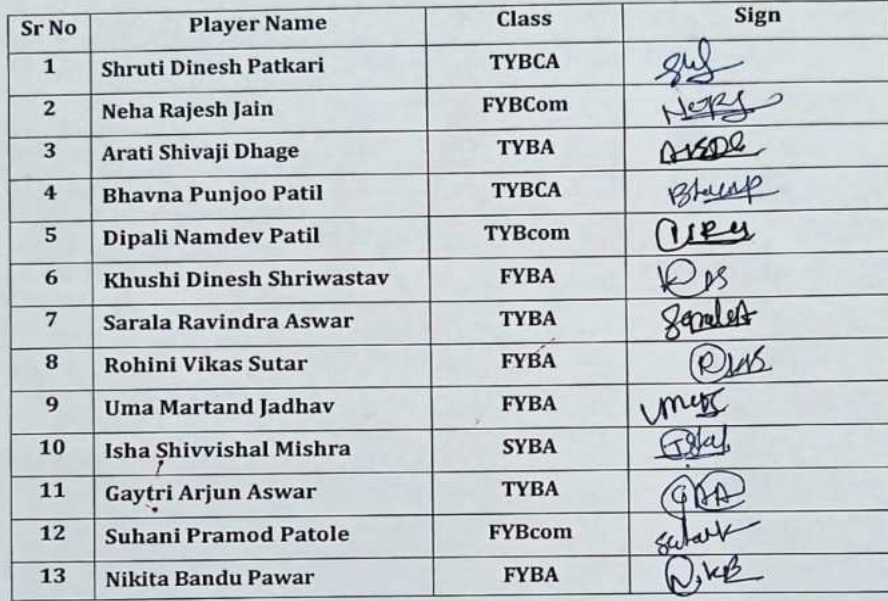 Sr No Player Name Class Sign
1 Shruti Dinesh Patkari TYBCA
2 Neha Rajesh Jain FYBCom
3 Arati Shivaji Dhage TYBA
4 Bhavna Punjoo Patil TYBCA
5 Dipali Namdev Patil TYBcom
6 Khushi Dinesh Shriwastav FYBA
7 Sarala Ravindra Aswar TYBA
8 Rohini Vikas Sutar FYBA
9 Uma Martand Jadhav FYBA
10 Isha Shivvishal Mishra SYBA
11 Gaytri Arjun Aswar TYBA
12 Suhani Pramod Patole FYBcom
13 Nikita Bandu Pawar FYBA